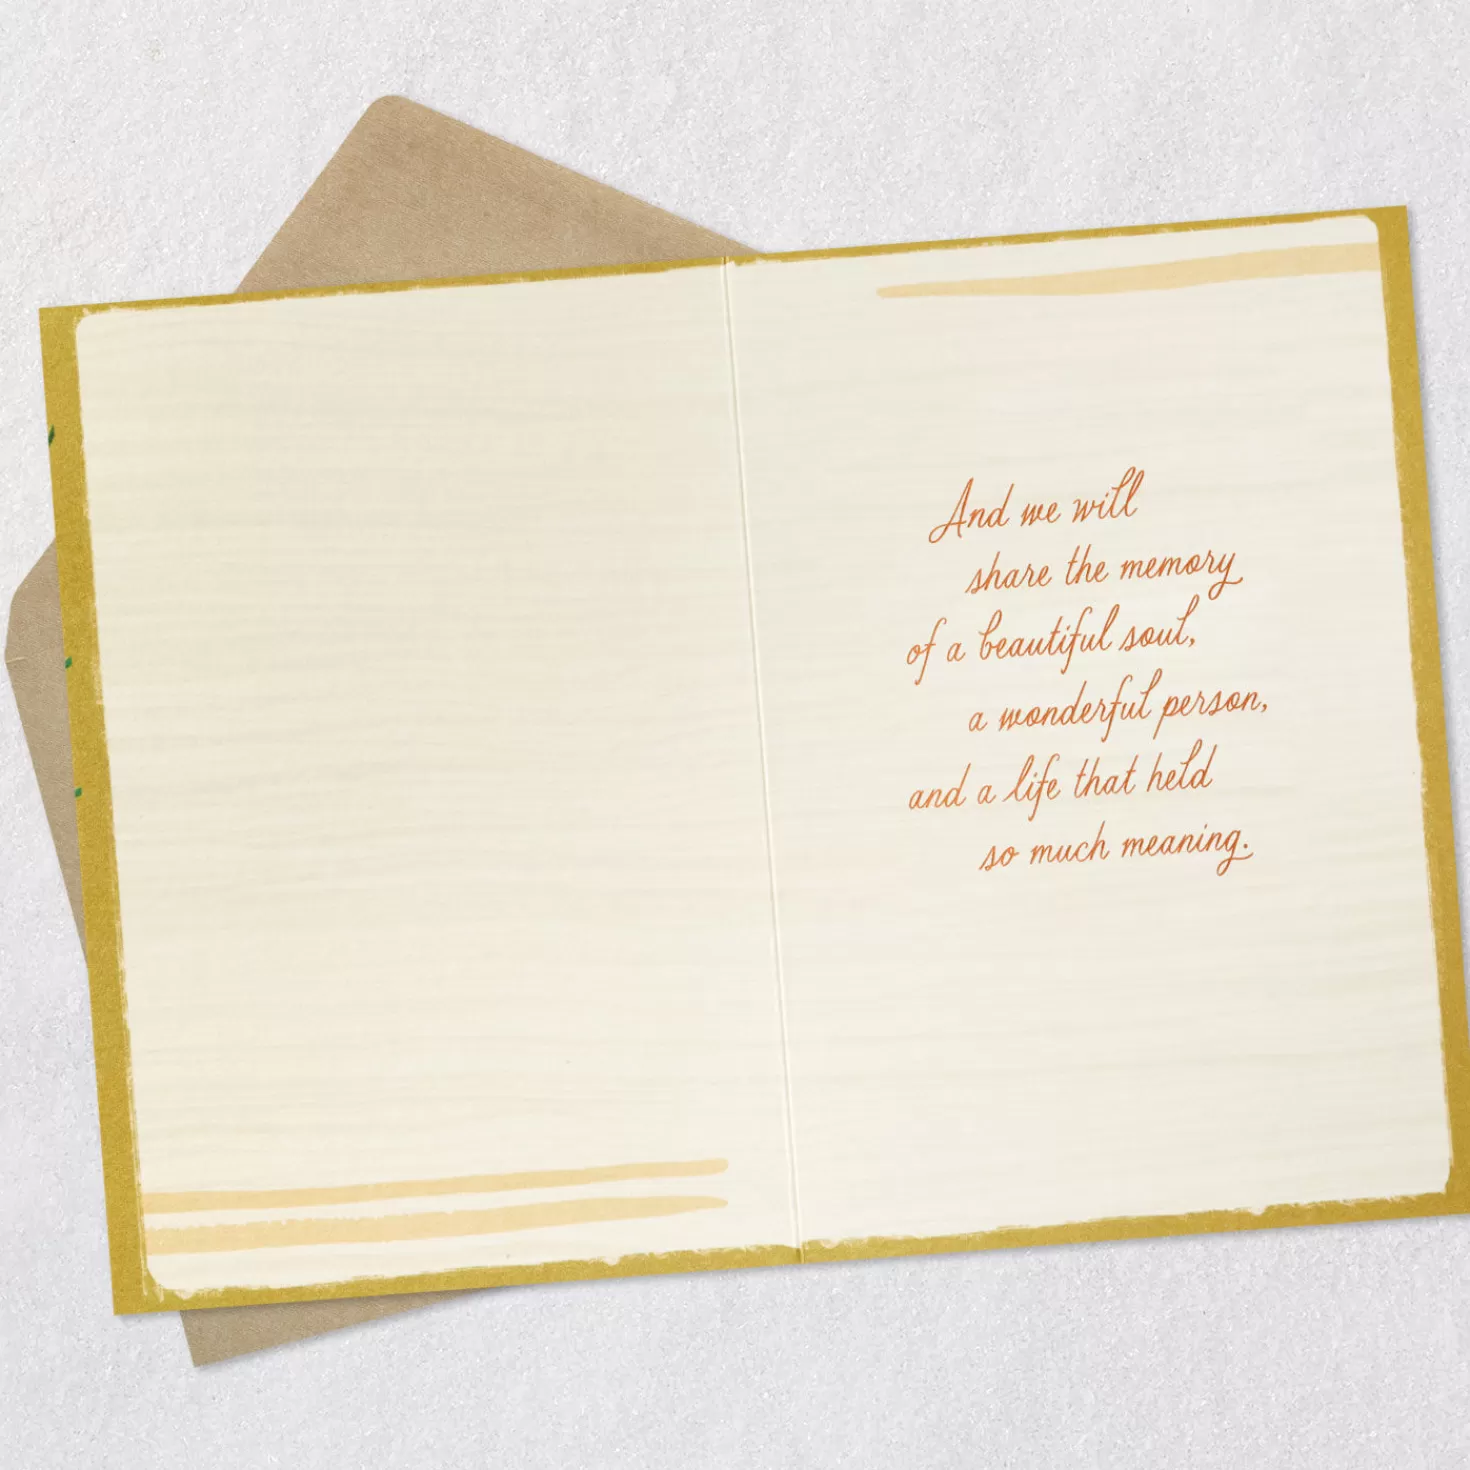 And we will
share the memory
of a beautiful soul,
a wonderful person,
and a life that held
so much meaning.